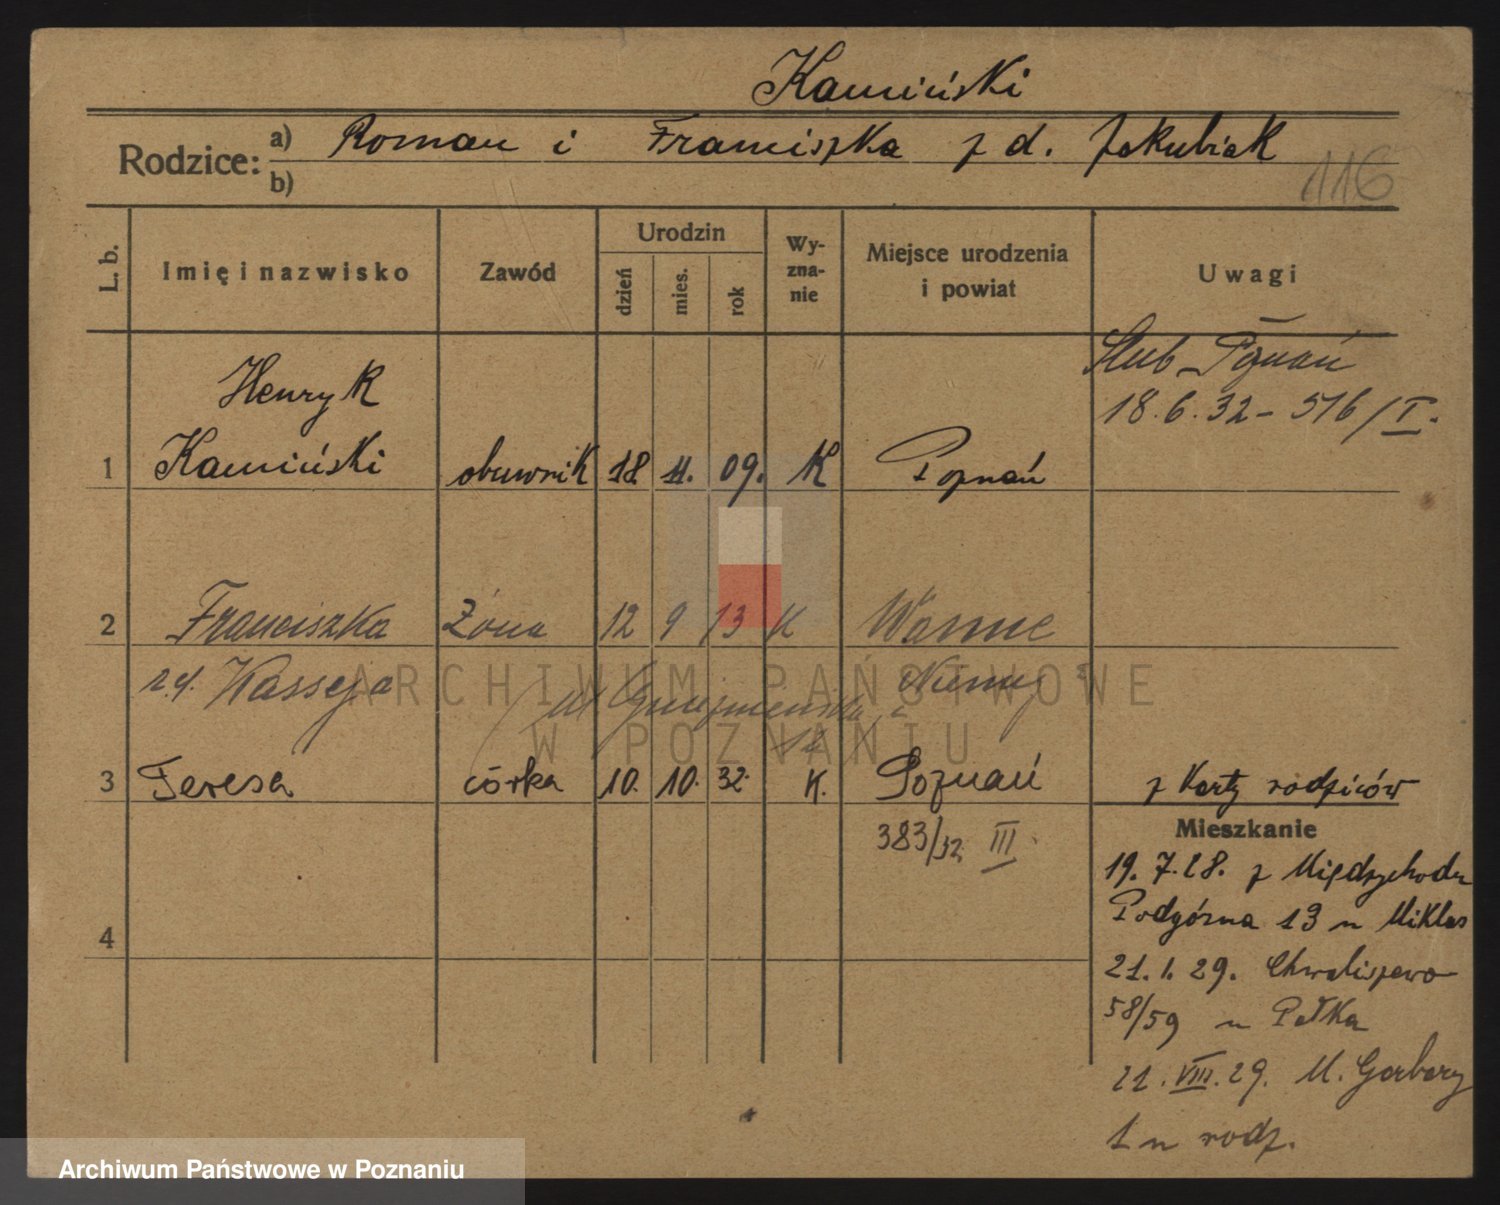 Kamiński
Rodzice: a) Roman i Franciszka z d. Jakubiak
b)
116
L. b. Imię i nazwisko Zawód Urodzin dzień mies. rok Wyznanie Miejsce urodzenia i powiat Uwagi
Ślub Poznań
18.6.32 – 516/I.
Henryk
1 Kamiński obuwnik 18. 11. 09. K Poznań
2 Franciszka Żona 12 9 13 K Wanne
z d. Kasseja Niemcy
3 Teresa córka 10. 10. 32. K. Poznań z Karty rodziców
383/32 III.
4
Mieszkanie
19.7.28. z Międzychodu
Podgórna 13 u Miklas
21.1.29. Chwaliszewo
58/59 u Pełka
21.VIII.29. M. Garbary
1 u rodz.
ARCHIWUM PAŃSTWOWE
W POZNANIU
Archiwum Państwowe w Poznaniu